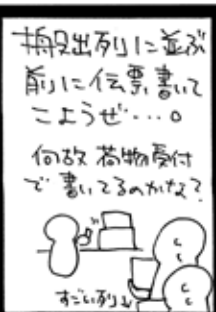 搬出列に並ぶ
前に伝票書いて
こようぜ…。
何故 荷物受付
で書いてるのかな?
すごい列